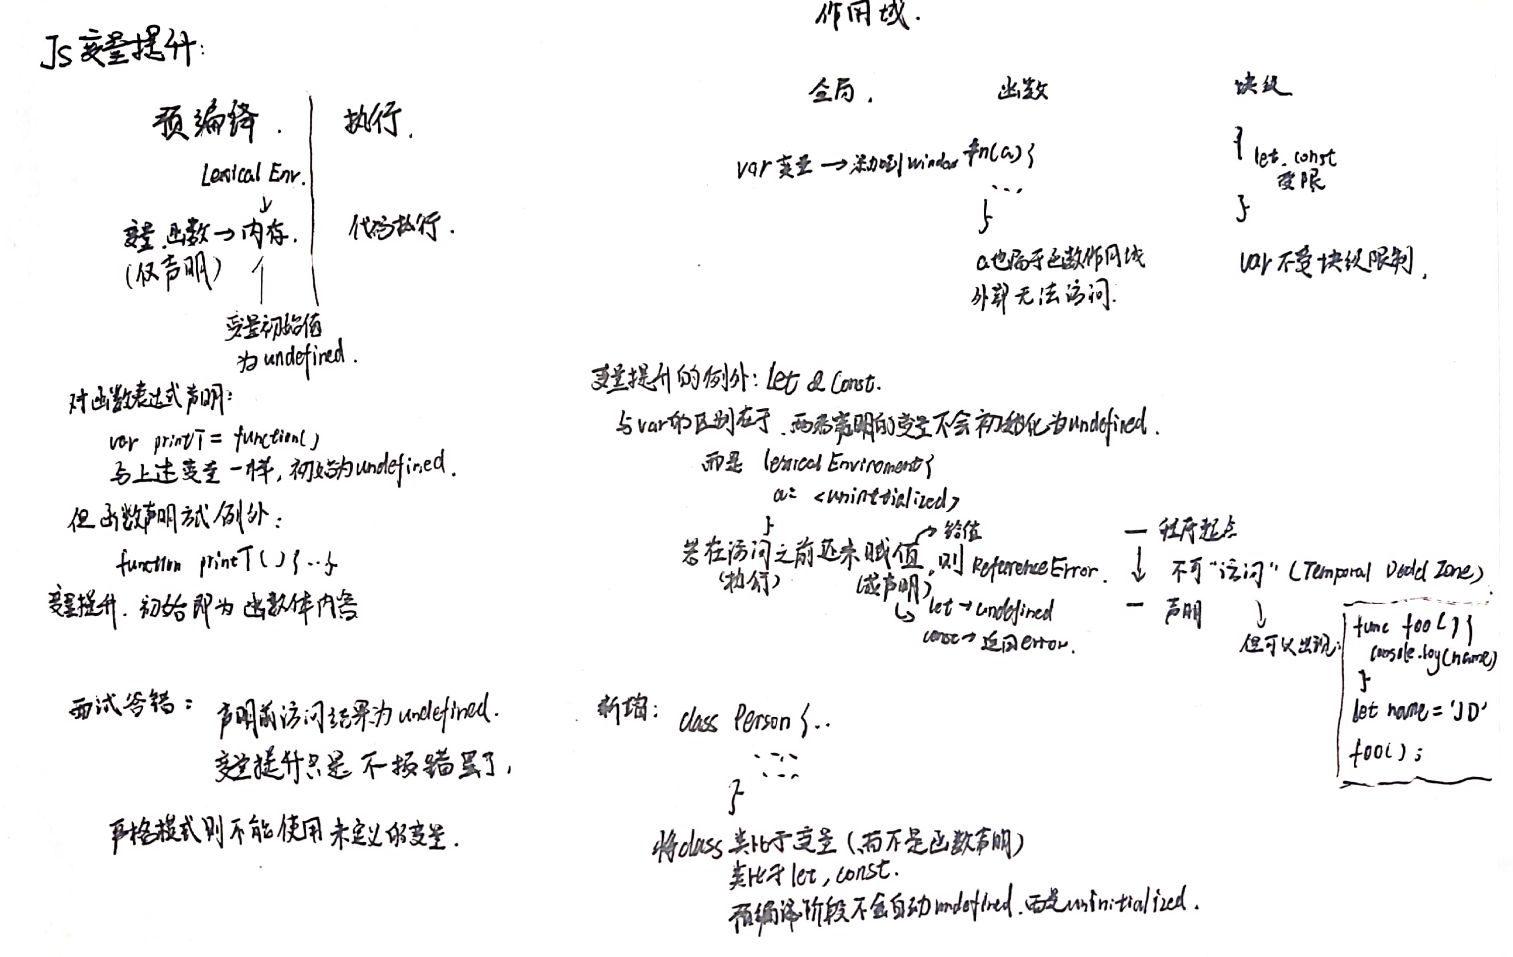 JS变量提升:
预编绎.
执行.
Lexical Env.
↓
变量,函数→内存.
代码执行.
(仅声明)
变量初始值
为undefined.
对函数表达式声明:
var printT = function()
与上述变量一样,初始为undefined.
但函数声明方式例外:
function printT(){...}
变量提升.初始即为函数体内容
面试答错:
声明前访问结果为undefined.
变量提升只是不报错罢了,
严格模式则不能使用未定义的变量.
作用域.
全局.
函数
块级
var变量→添加到window
fn(a){
...
}
a也属于函数作用域
外部无法访问.
{
let.const
受限
}
var不受块级限制.
变量提升的例外: let & const.
与var的区别在于.两者声明的变量不会初始化为undefined.
而是 lexical Enviroment{
a: <uninitialized>
}
→给值
若在访问之前还未赋值,则ReferenceError.
(执行)
(或声明)
let→undefined
const→返回error.
— 程序起点
↓ 不可"访问" (Temporal Dead Zone)
— 声明
↓
但可以出现:
func foo(){
console.log(name)
}
let name = 'JD'
foo();
新增:
class Person{..
}
将class类比于变量(而不是函数声明)
类比于let,const.
预编译阶段不会自动undefined.而是uninitialized.